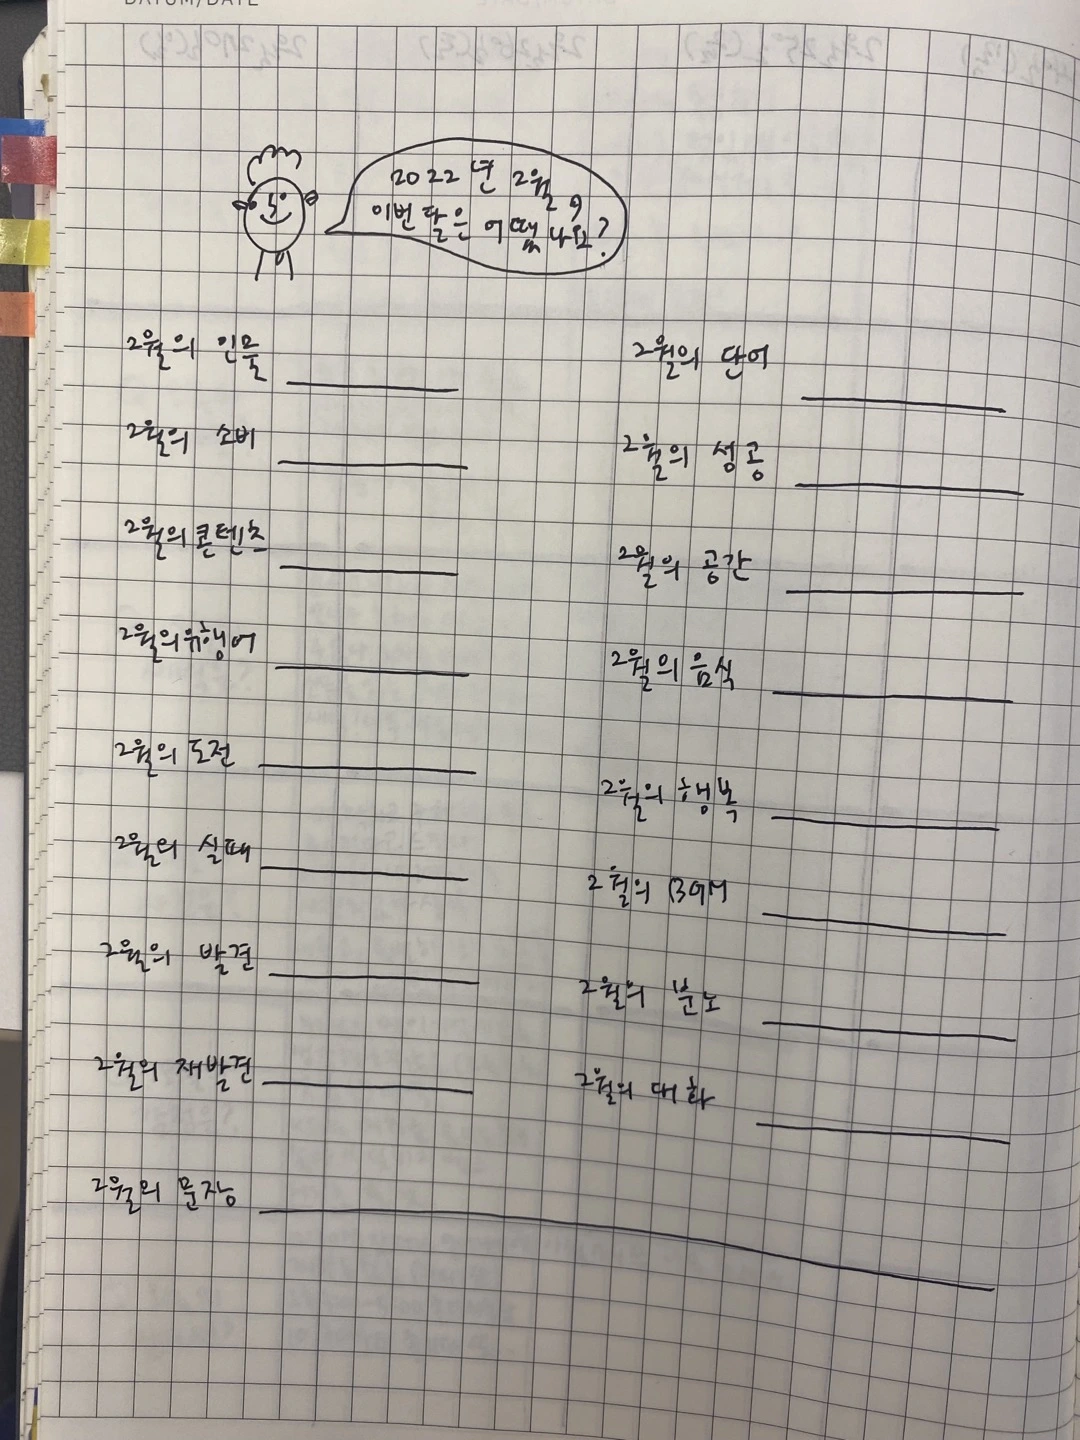 DATUM/DATE
2022년 2월,
이번 달은 어땠나요?
2월의 인물
2월의 소비
2월의 콘텐츠
2월의 유행어
2월의 도전
2월의 실패
2월의 발견
2월의 재발견
2월의 문장
2월의 단어
2월의 성공
2월의 공간
2월의 음식
2월의 행복
2월의 BGM
2월의 분노
2월의 대화